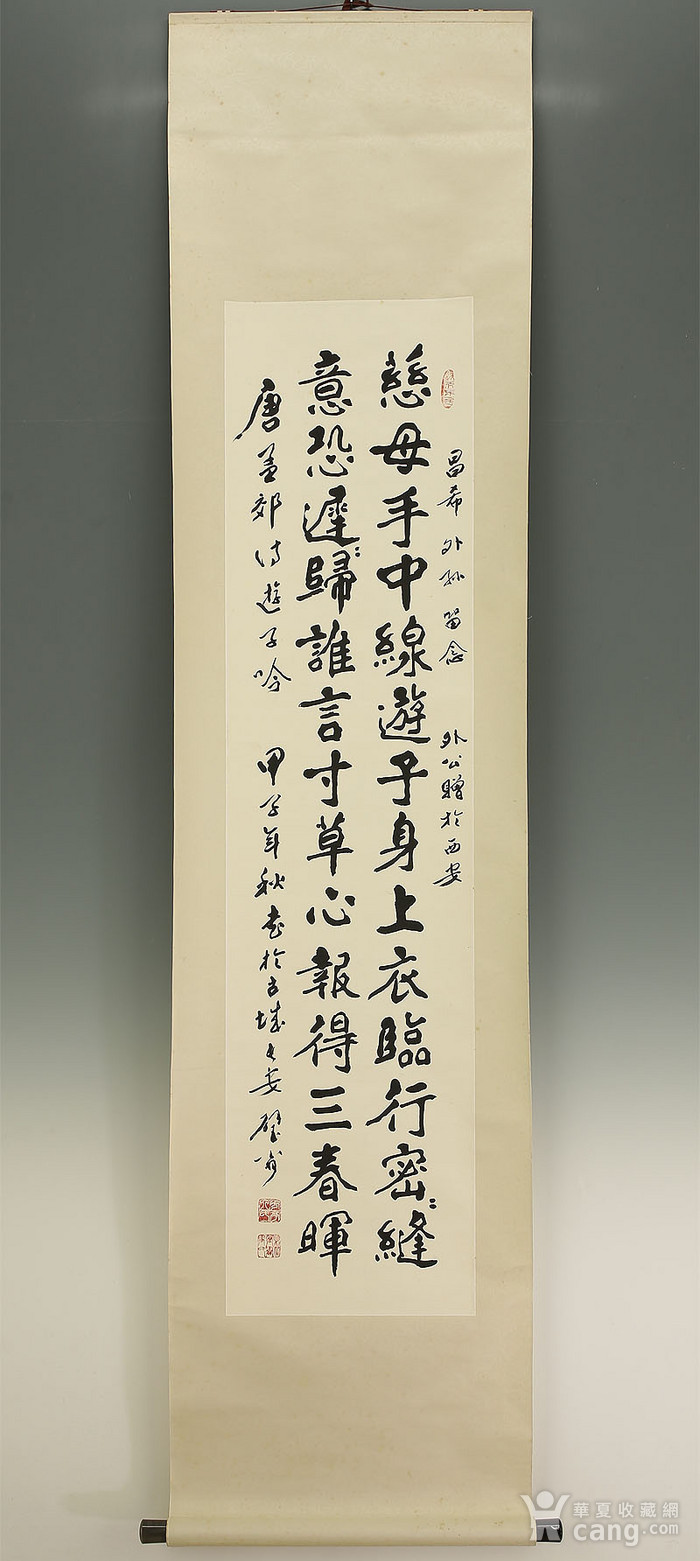 昌希外孙留念 外公贈於西安
慈母手中線遊子身上衣臨行密:縫
意恐遲:歸誰言寸草心報得三春暉
唐孟郊诗遊子吟 甲子年秋书於古城长安
華夏收藏網
cang.com